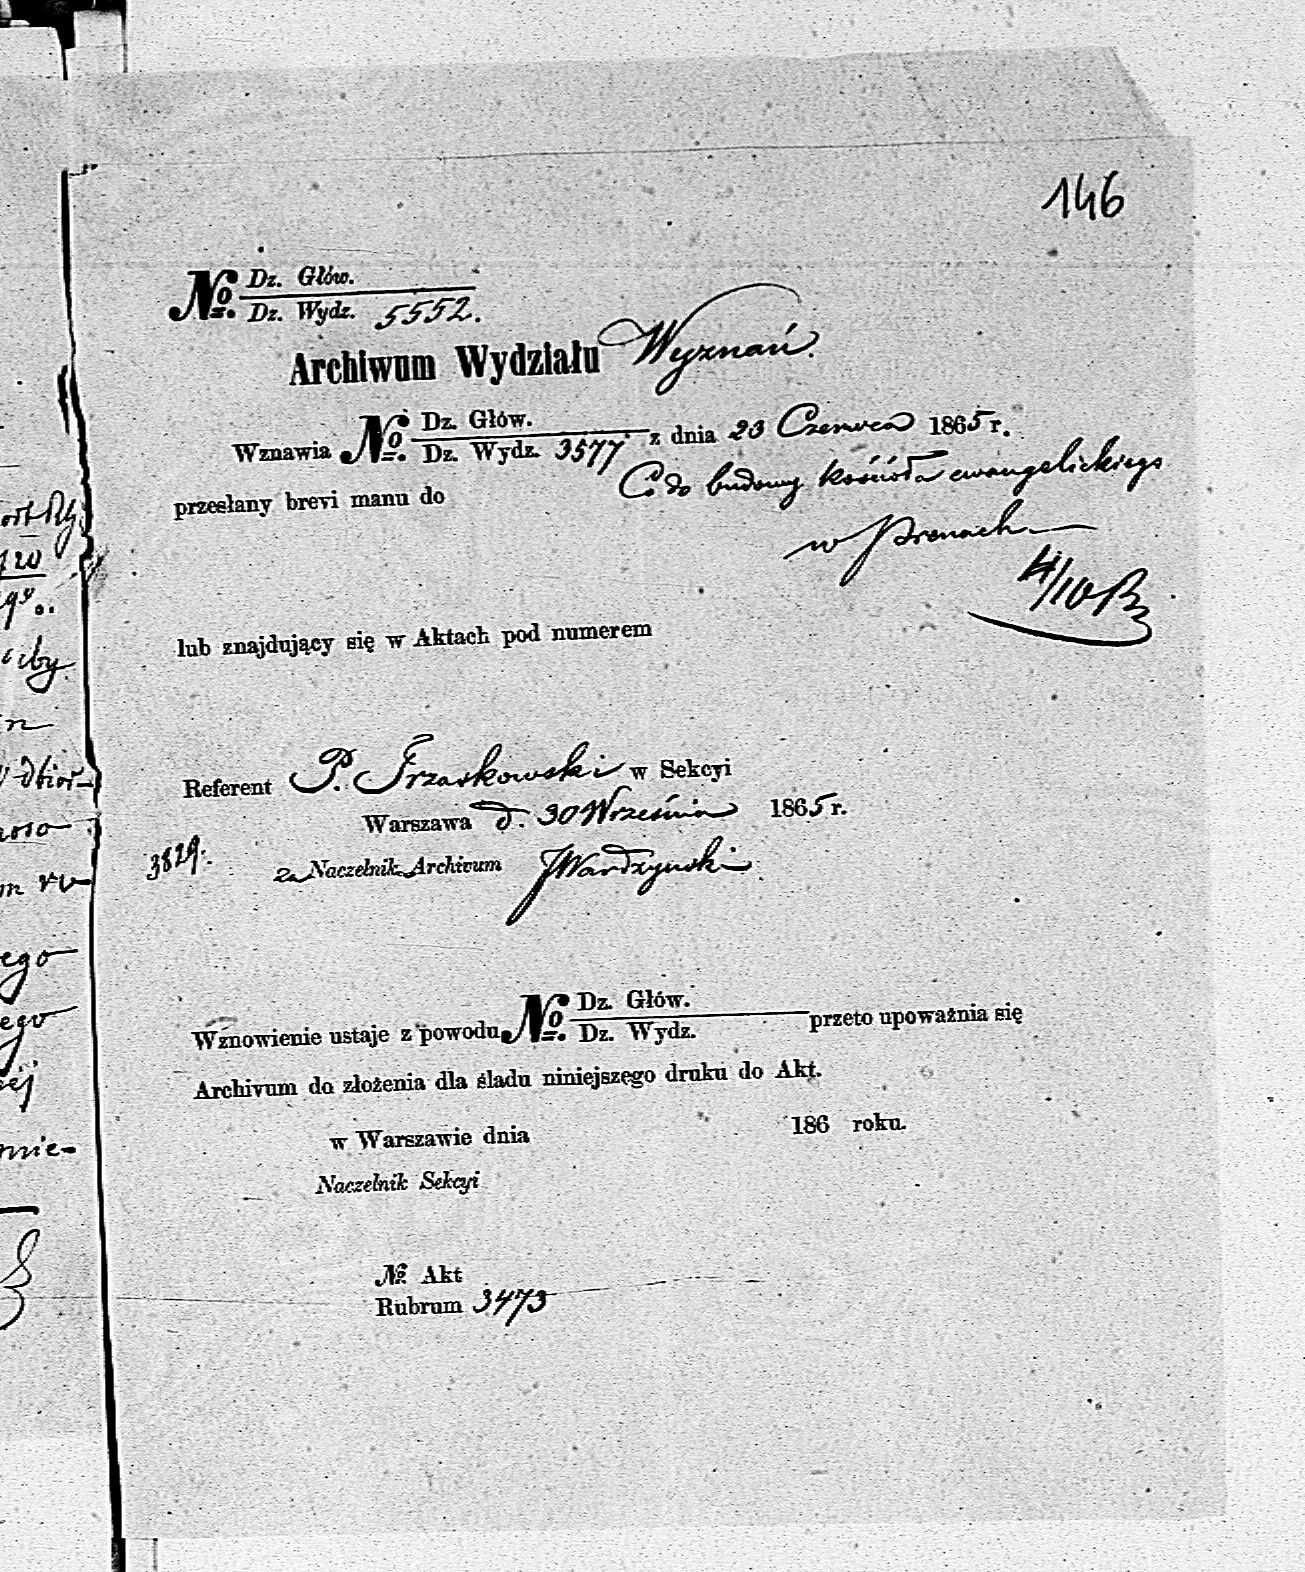 146
№ Dz. Głów.
Dz. Wydz. 5552.
Archiwum Wydziału Wyznań.
Wznawia № Dz. Głów.
Dz. Wydz. 3577 z dnia 23 Czerwca 1865 r.
przesłany brevi manu do Co do budowy kościoła ewangelickiego
w Prenach
4/10
lub znajdujący się w Aktach pod numerem
Referent P. Trzaskowski w Sekcyi
Warszawa d. 30 Września 1865 r.
3829.
za Naczelnik Archivum JWardzyński
Wznowienie ustaje z powodu № Dz. Głów.
Dz. Wydz. przeto upoważnia się
Archivum do złożenia dla śladu niniejszego druku do Akt.
w Warszawie dnia 186 roku.
Naczelnik Sekcyi
№ Akt
Rubrum 3473